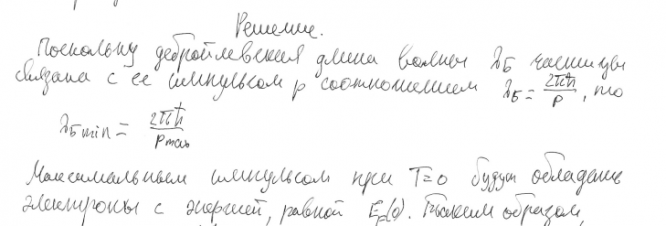 Решение.
Поскольку дебройлевская длина волны λ_Б частицы
связана с ее импульсом p соотношением λ_Б = 2πħ/p, то
λ_Б min = 2πħ/p max
Максимальным импульсом при T=0 будут обладать
электроны с энергией, равной E_F(0). Таким образом,